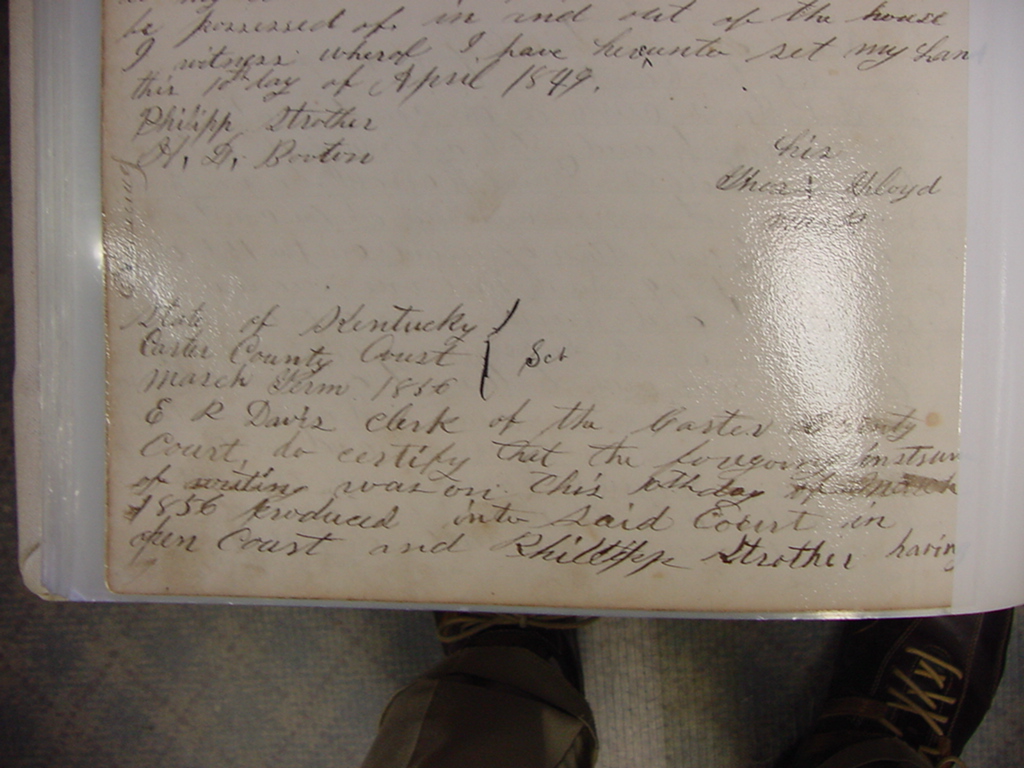 be possessed of in and out of the house
I witness wherof I have hereunto set my han
this 10th day of April 1849.
Philipp Strother
H. D. Booton
his
Thos: Floyd
mark
State of Kentucky
Carter County Court
Sct
March Term 1856
E R Davis clerk of the Carter County
Court, do certify that the foregoing instrum
of writing was on this 10th day of March
1856 produced into said Court in
open Court and Phillipp Strother having